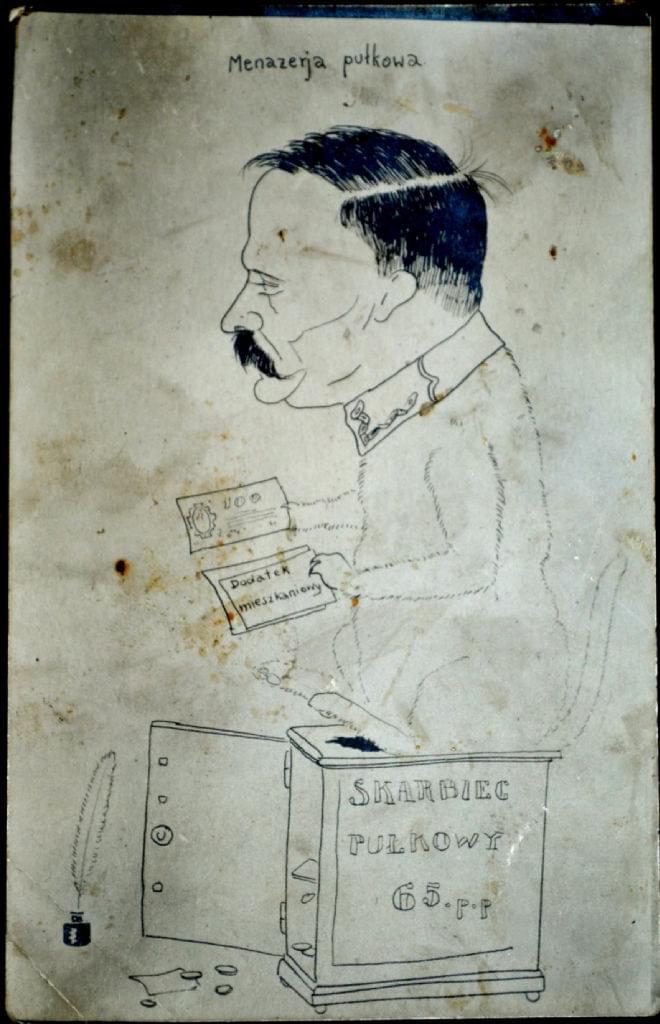 Menazerja pułkowa
100
Dodatek
mieszkaniowy
SKARBIEC
PUŁKOWY
65. p.p